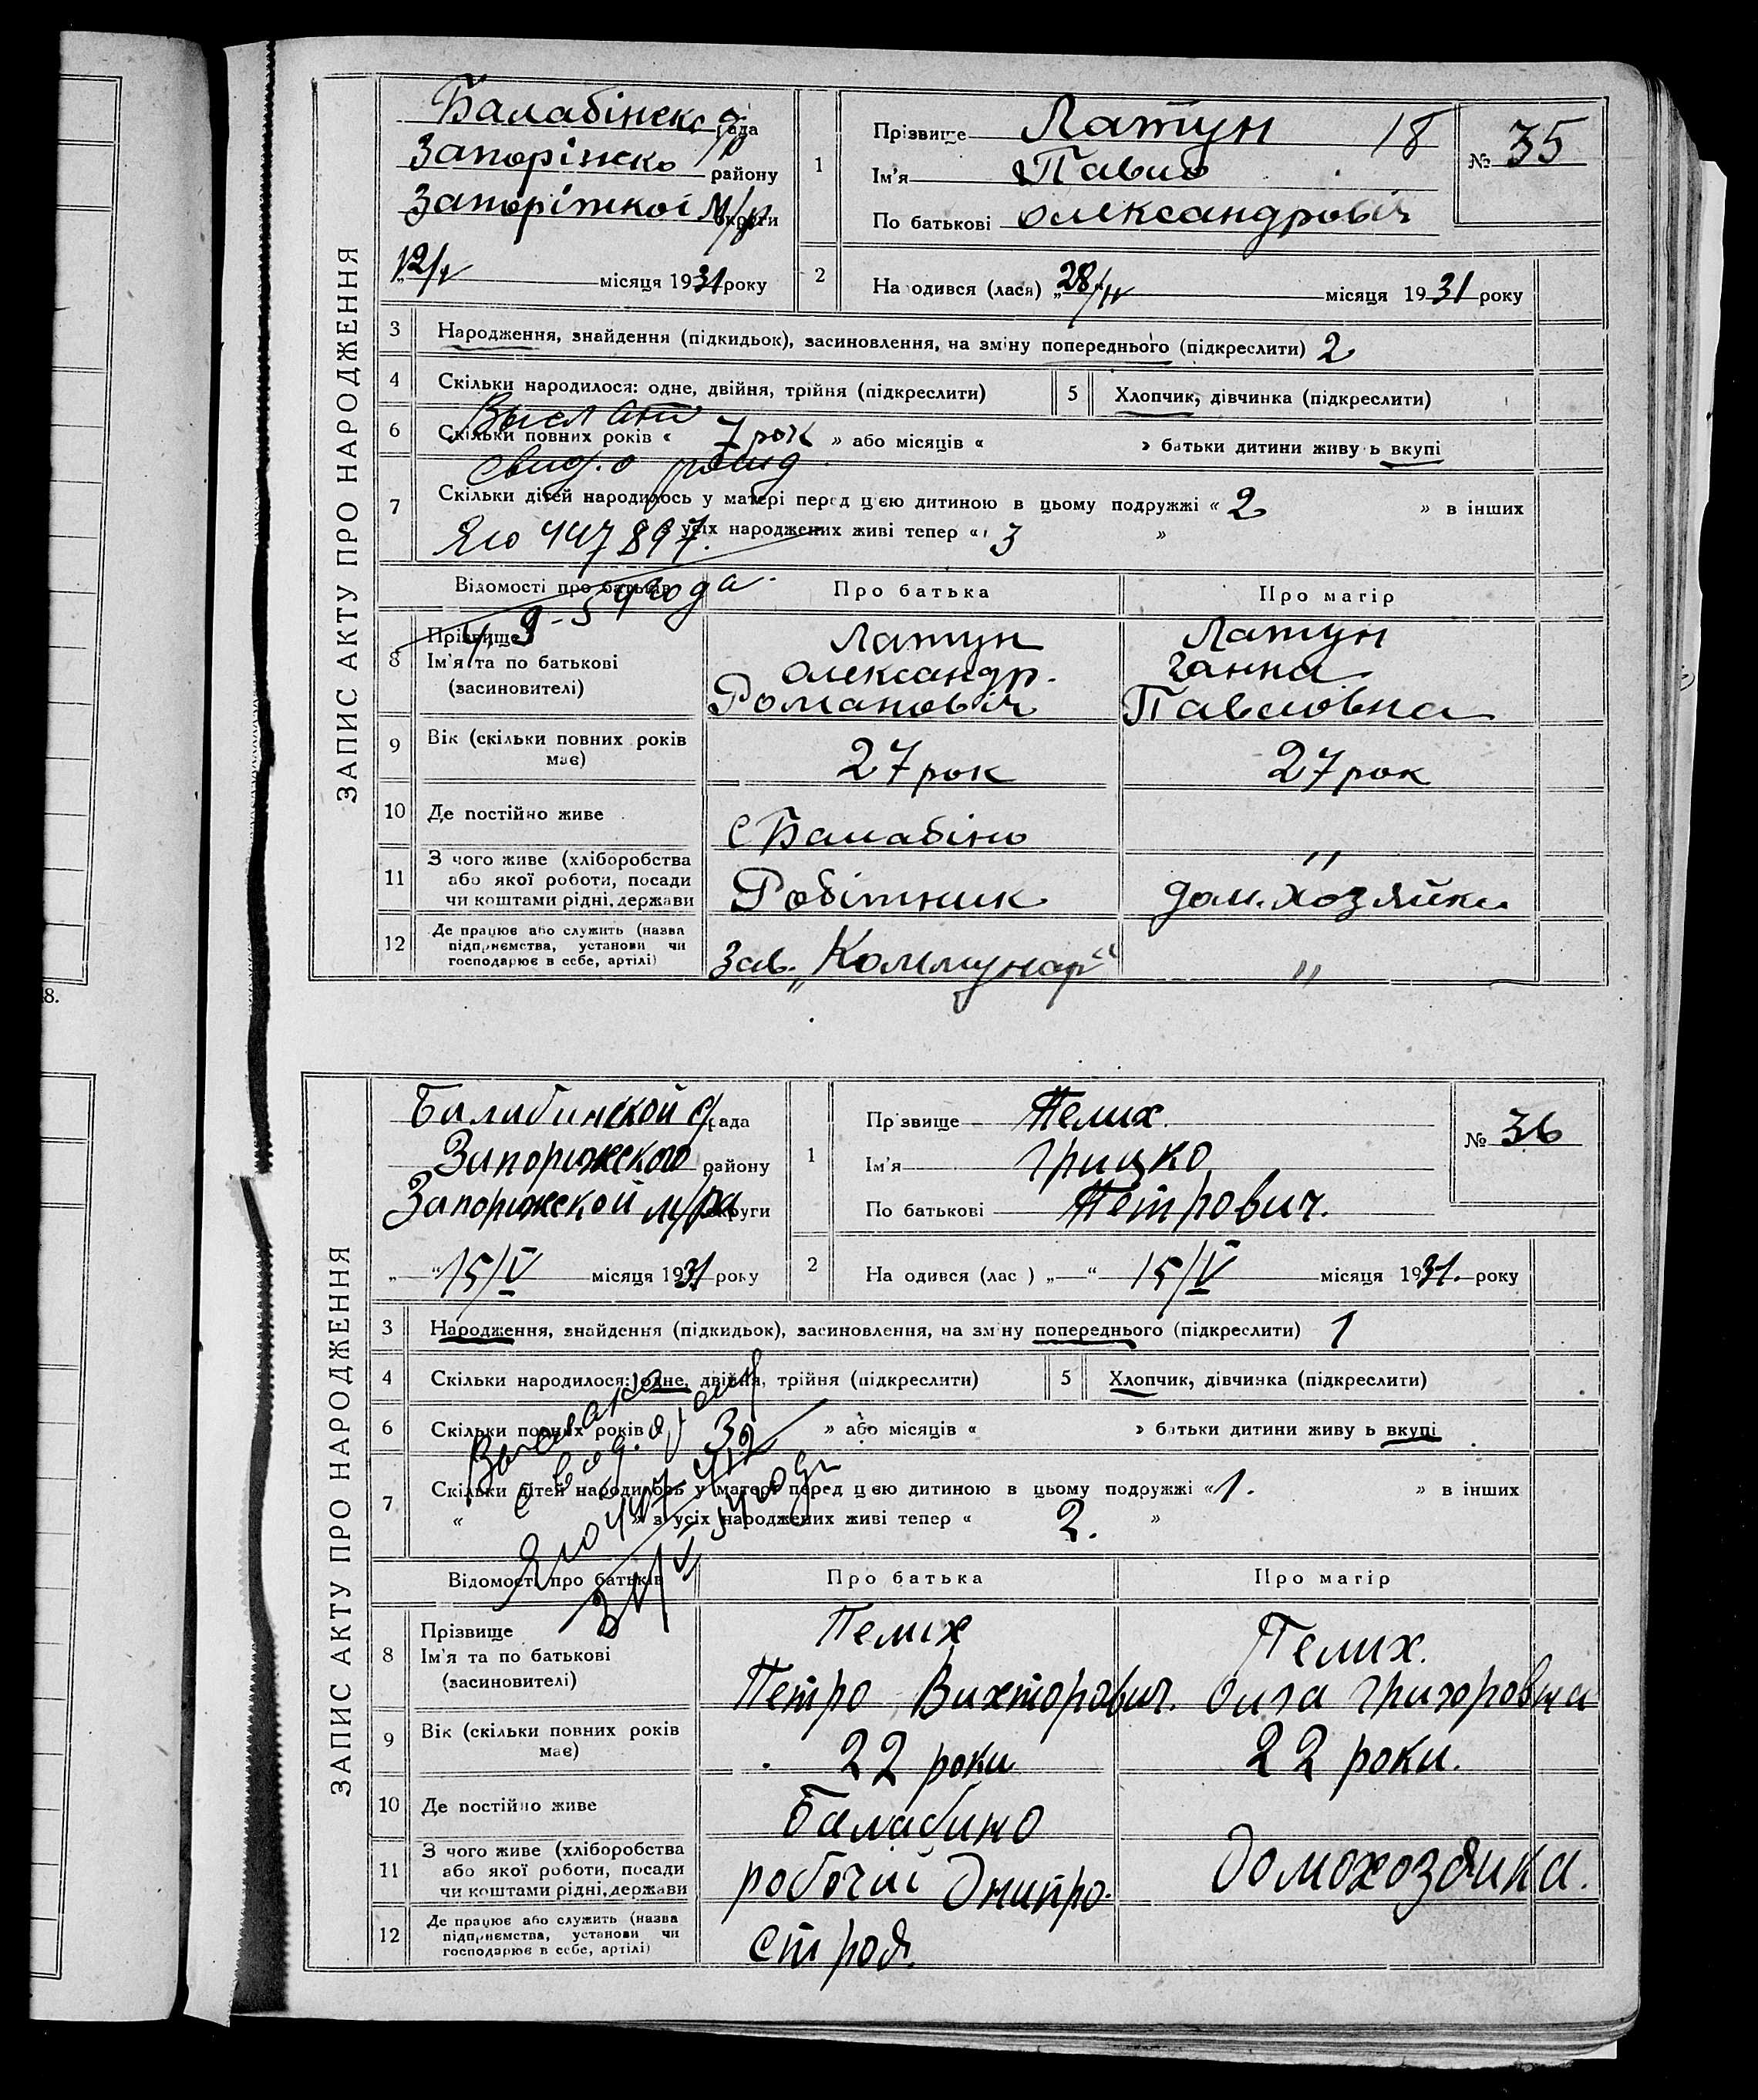 8.
ЗАПИС АКТУ ПРО НАРОДЖЕННЯ
Балабінско рада
Запоріжско району
Запоріжкої м/р округи
12/V місяця 1931 року
1
Прізвище Латун 18
Ім'я Павло
По батькові Олександровіч
№ 35
2
Народився (лася) „28/IV місяця 1931 року
3 Народження, знайдення (підкидьок), засиновлення, на зміну попереднього (підкреслити) 2
4 Скільки народилося: одне, двійня, трійня (підкреслити)
5 Хлопчик, дівчинка (підкреслити)
6 Скільки повних років « 7 рок » або місяців « » батьки дитини живу ь вкупі
Выслано
свид. о рожд.
7 Скільки дітей народилось у матері перед цією дитиною в цьому подружжі « 2 » в інших
усіх народжених живі тепер « 3 »
Яю 447897.
54 года.
Відомості про батьків
Про батька
Про матір
8 Прізвище
Ім'я та по батькові
(засиновителі)
Латун
Олександр.
Романовіч
Латун
Ганна
Павловна
9 Вік (скільки повних років має)
27 рок
27 рок
10 Де постійно живе
С Балабіно
"
11 З чого живе (хліборобства
або якої роботи, посади
чи коштами рідні, держави
Робітник
дом. хозяйка
12 Де працює або служить (назва
підприємства, установи чи
господарює в себе, артілі)
Зав. „Коммунар"
"
ЗАПИС АКТУ ПРО НАРОДЖЕННЯ
Балабинской с/рада
Запорижского району
Запорижской м/ра округи
„ “ 15/V місяця 1931 року
1
Прізвище Пелих.
Ім'я Грицко
По батькові Петрович.
№ 36
2
Народився (лас ) „ “ 15/V місяця 1931. року
3 Народження, знайдення (підкидьок), засиновлення, на зміну попереднього (підкреслити) 1
4 Скільки народилося: одне, двійня, трійня (підкреслити)
5 Хлопчик, дівчинка (підкреслити)
6 Скільки повних років « 3 » або місяців « » батьки дитини живу ь вкупі
7 Скільки дітей народилось у матері перед цією дитиною в цьому подружжі « 1. » в інших
« » з усіх народжених живі тепер « 2. »
Відомості про батьків
Про батька
Про матір
8 Прізвище
Ім'я та по батькові
(засиновителі)
Пеліх
Петро Вихторович.
Пелих.
Ольга Григоровна
9 Вік (скільки повних років має)
22 роки
22 роки.
10 Де постійно живе
Балабино
11 З чого живе (хліборобства
або якої роботи, посади
чи коштами рідні, держави
робочий Днипро-
домохозяйка.
12 Де працює або служить (назва
підприємства, установи чи
господарює в себе, артілі)
строя.